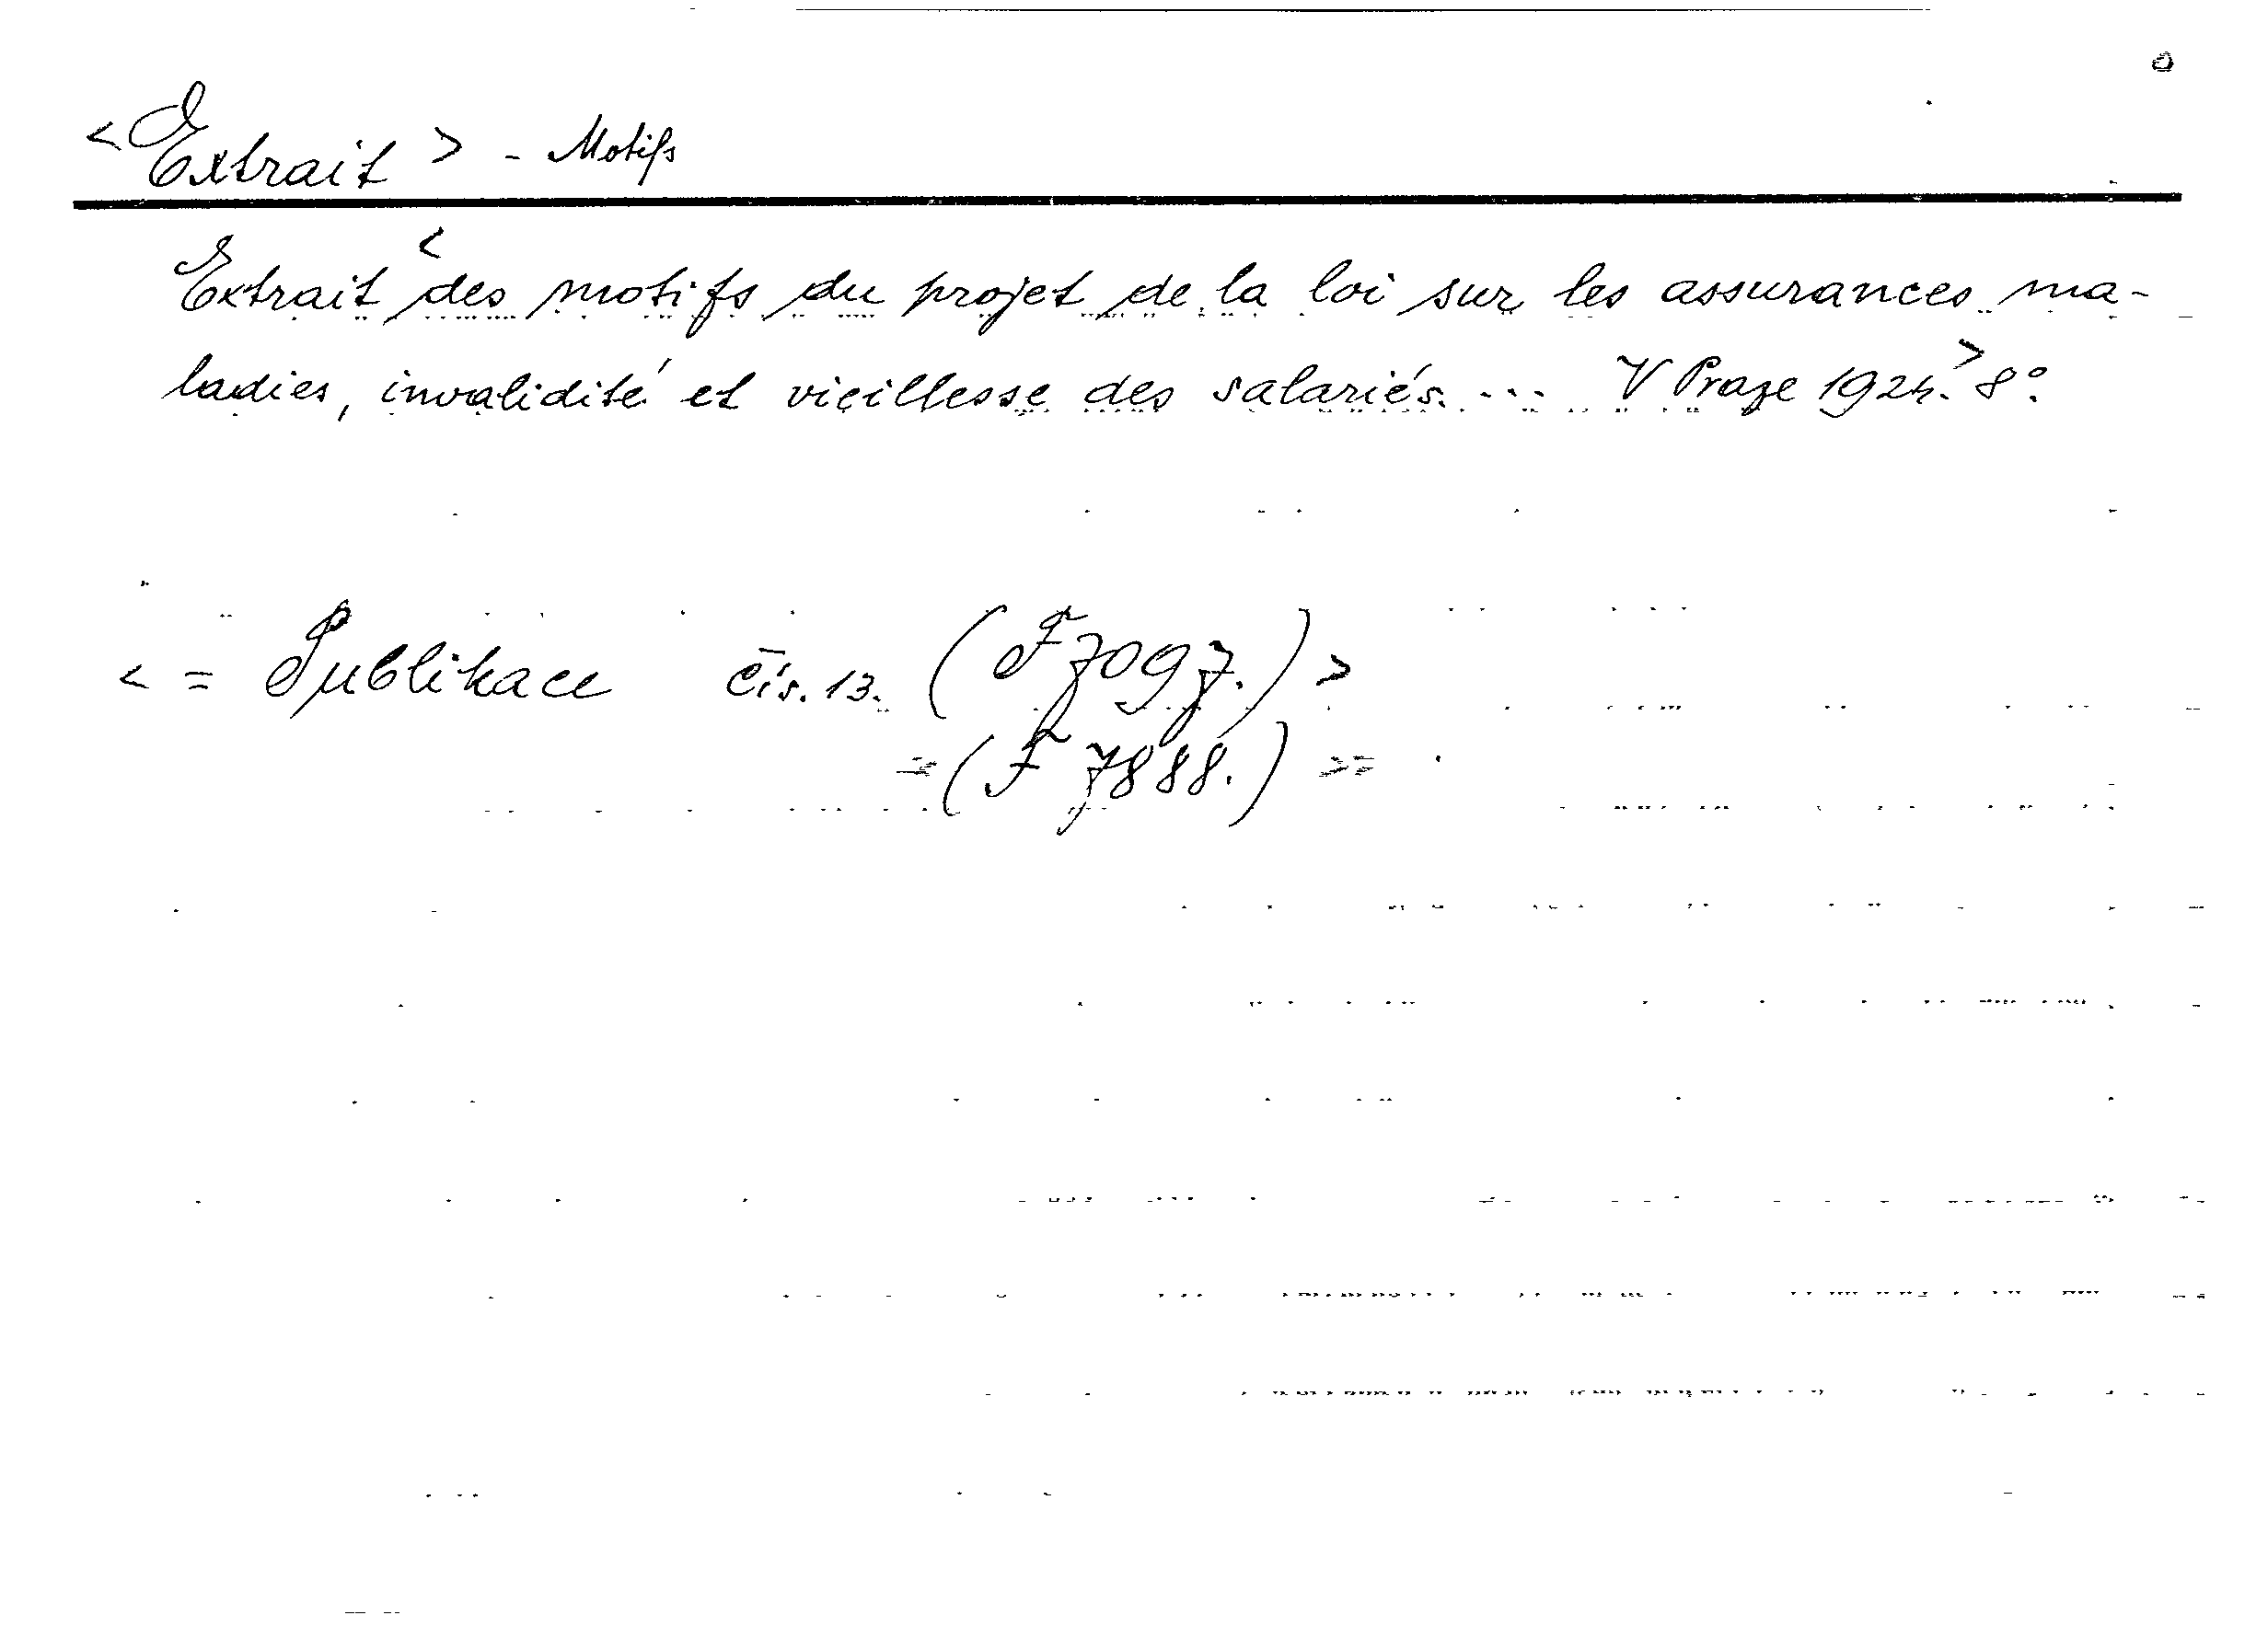 <Extrait> - Motifs
Extrait <des motifs du projet de la loi sur les assurances ma-
ladies, invalidité et vieillesse des salariés. ... V Praze 1924.> 8°.
< = Publikace čís. 13. (F 7097.) >
=(F 7888.) >=